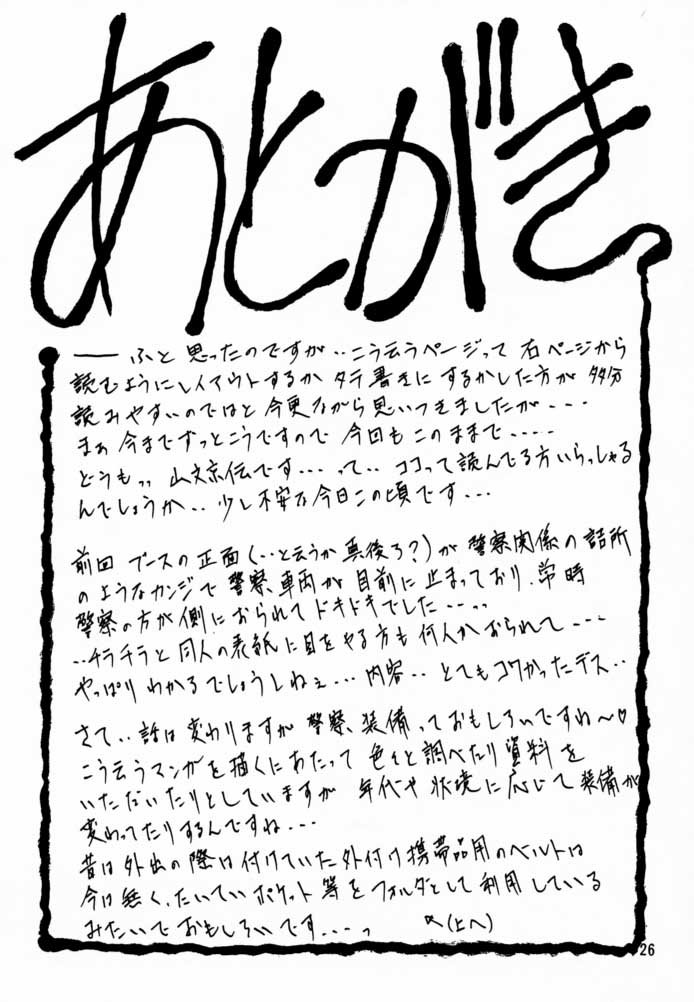 あとがき
── ふと思ったのですが‥こう云うページって右ページから
読むようにレイアウトするかタテ書きにするかした方が多分
読みやすいのではと今更ながら思いつきましたが‥‥
まぁ今までずっとこうですので今回もこのままで‥‥‥
どうもっっ山文京伝です‥‥って‥ココって読んでる方いらっしゃる
んでしょうか‥少し不安な今日この頃です‥‥
前回ブースの正面(‥と云うか真後ろ?)が警察関係の詰所
のようなカンジで警察車両が目前に止まっており、常時
警察の方が側におられてドキドキでした‥‥っっ
‥チラチラと同人の表紙に目をやる方も何人かおられて‥‥
やっぱりわかるでしょうしねぇ‥‥内容‥とてもコワかったデス‥
さて‥話は変わりますが警察装備っておもしろいですね〜♡
こう云うマンガを描くにあたって色々と調べたり資料を
いただいたりとしていますが年代や状境に応じて装備が
変わってたりするんですね‥‥
昔は外出の際は付けていた外付け携帯品用のベルトは
今は無く、たいていポケット等をフォルダとして利用している
みたいでおもしろいです‥‥っ (上へ)
26